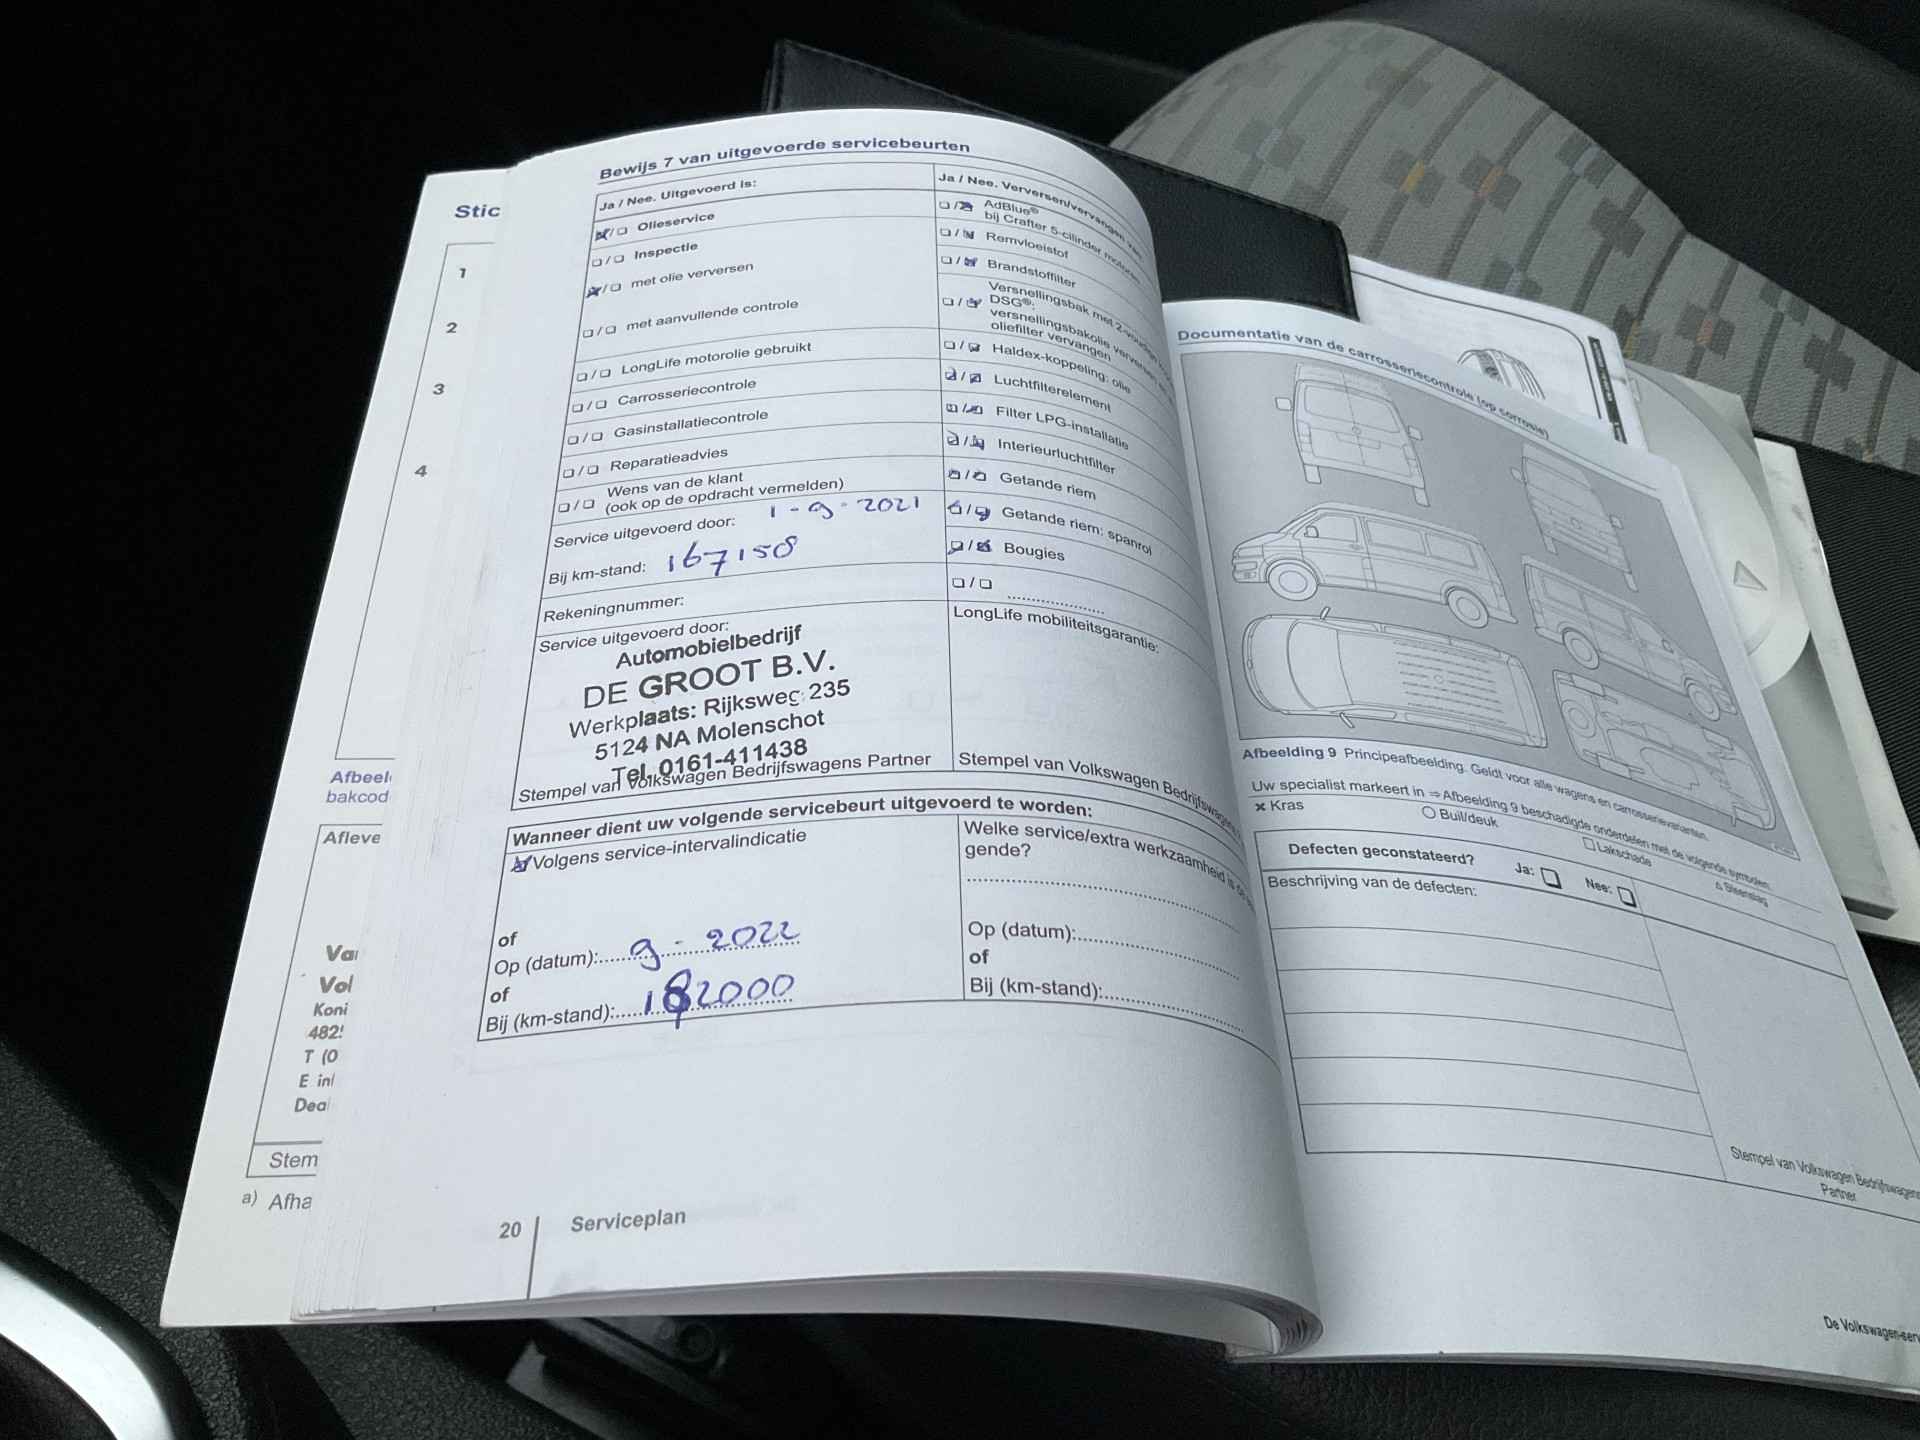 Stic
1
2
3
4
Afbeel
bakcod
Afleve
Vol
Koni
T (0
Deal
Stem
a) Afha
Bewijs 7 van uitgevoerde servicebeurten
Ja / Nee. Uitgevoerd is:
Olieservice
Inspectie
met olie verversen
met aanvullende controle
LongLife motorolie gebruikt
Carrosseriecontrole
Gasinstallatiecontrole
Reparatieadvies
Wens van de klant
(ook op de opdracht vermelden)
Service uitgevoerd door: 1-9-2021
Bij km-stand: 167158
Rekeningnummer:
Service uitgevoerd door:
Automobielbedrijf
DE GROOT B.V.
Werkplaats: Rijksweg 235
5124 NA Molenschot
Tel. 0161-411438
Stempel van Volkswagen Bedrijfswagens Partner
Ja / Nee. Verversen/vervangen van:
AdBlue®
bij Crafter 5-cilinder motoren
Remvloeistof
Brandstoffilter
Versnellingsbak met 2-voudige
DSG®:
versnellingsbakolie verversen
oliefilter vervangen
Haldex-koppeling: olie
Luchtfilterelement
Filter LPG-installatie
Interieurluchtfilter
Getande riem
Getande riem: spanrol
Bougies
LongLife mobiliteitsgarantie:
Stempel van Volkswagen Bedrijfswagens
Wanneer dient uw volgende servicebeurt uitgevoerd te worden:
Volgens service-intervalindicatie
of
Op (datum): 9-2022
of
Bij (km-stand): 182000
Welke service/extra werkzaamheid is
gende?
Op (datum):
of
Bij (km-stand):
20 Serviceplan
Documentatie van de carrosseriecontrole (op corrosie)
Afbeelding 9 Principeafbeelding. Geldt voor alle wagens en carrosserievarianten.
Uw specialist markeert in ⇒ Afbeelding 9 beschadigde onderdelen met de volgende symbolen:
× Kras ○ Buil/deuk □ Lakschade △ Steenslag
Defecten geconstateerd? Ja: Nee:
Beschrijving van de defecten:
Stempel van Volkswagen Bedrijfswagens
Partner
De Volkswagen-serv